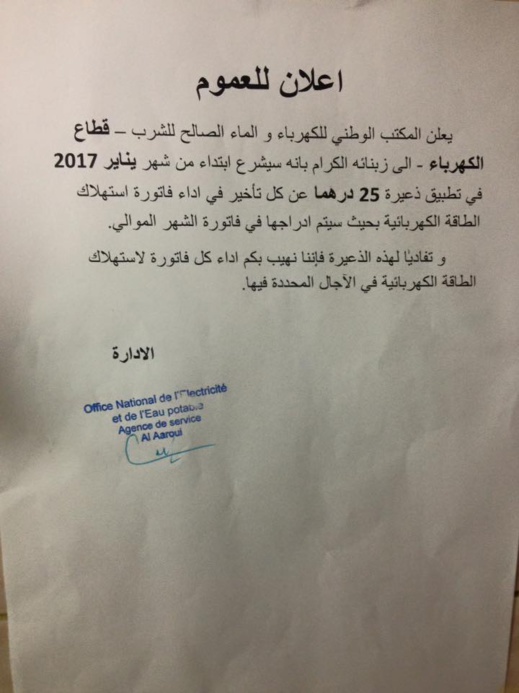 اعلان للعموم
يعلن المكتب الوطني للكهرباء و الماء الصالح للشرب – قطاع
الكهرباء - الى زبنائه الكرام بانه سيشرع ابتداء من شهر يناير 2017
في تطبيق ذعيرة 25 درهما عن كل تأخير في اداء فاتورة استهلاك
الطاقة الكهربائية بحيث سيتم ادراجها في فاتورة الشهر الموالي.
و تفاديا لهذه الذعيرة فإننا نهيب بكم اداء كل فاتورة لاستهلاك
الطاقة الكهربائية في الآجال المحددة فيها.
الادارة
Office National de l'Electricité
et de l'Eau potable
Agence de service
Al Aaroui